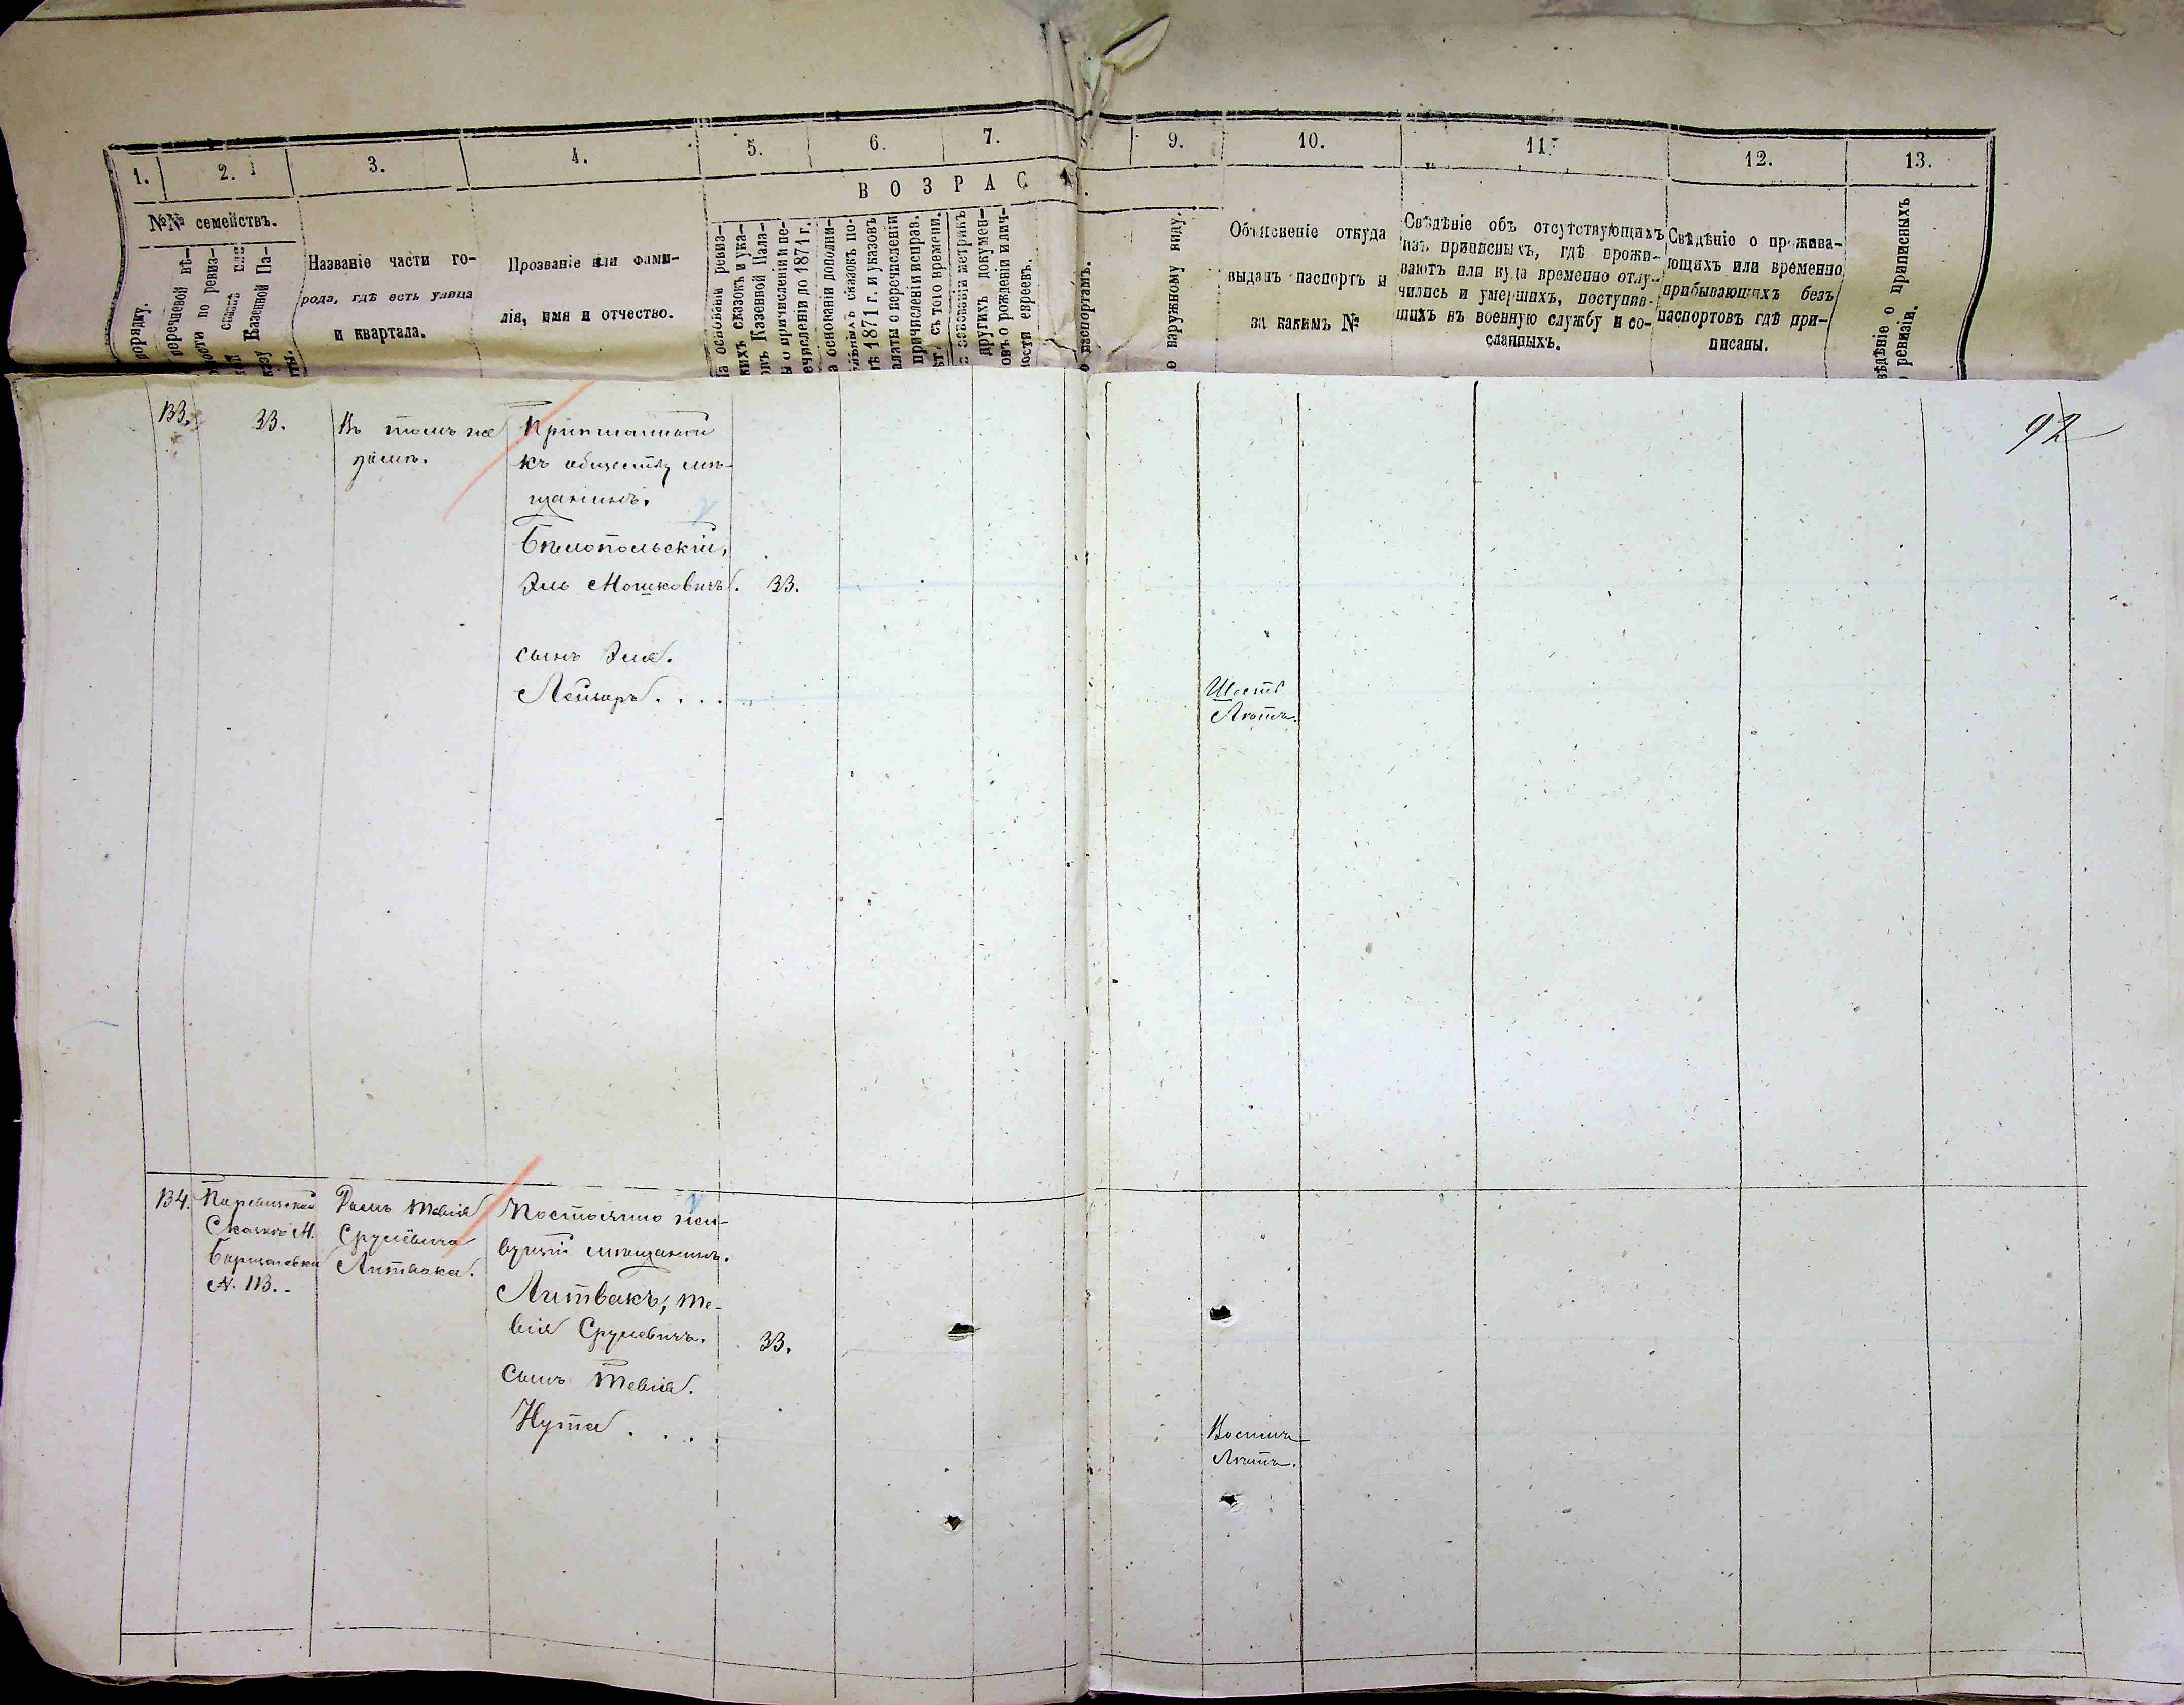 1.
2.
3.
4.
5.
6.
7.
9.
10.
11.
12.
13.
ВОЗРАС
№№ семействъ.
порядку.
Названіе части го-
рода, гдѣ есть улица
и квартала.
Прозваніе или фами-
лія, имя и отчество.
ревиз-
кихъ сказокъ и ука-
Казенной Пала-
о причисленіи и пе-
речисленіи до 1871 г.
основаніи дополни-
сказокъ по-
1871 г. и указовъ
палаты о перечисленіи
причисленіи исправ.
съ того времени.
метрикъ
другихъ докумен-
овъ о рожденіи и лич-
ности евреевъ.
паспортамъ.
о наружному виду.
Объясненіе откуда
выданъ паспортъ и
за какимъ №
Свѣдѣніе объ отсутствующихъ
изъ приписныхъ, гдѣ прожи-
ваютъ или куда временно отлу-
чились и умершихъ, поступив-
шихъ въ военную службу и со-
сланныхъ.
Свѣдѣніе о прожива-
ющихъ или временно
прибывающихъ безъ
паспортовъ гдѣ при-
писаны.
вѣдѣніе о приписныхъ
ревизіи.
92
133.
33.
Въ томъ же
домѣ.
къ обществу мѣ-
щанинъ.
Бѣлопольскій,
Эль Мошковичъ.
33.
сынъ Эля.
Лейзоръ....
Шесть
Лѣтъ.
134.
Сказкѣ М.
Борщаговки
№ 113.-
Домъ Тевія
Срулевича
Литвака.
Постоянно жи-
вущій мѣщанинъ.
Литвакъ, Те-
вія Срулевичъ.
33.
Сынъ Тевія.
Нута....
Восемь
Лѣтъ.